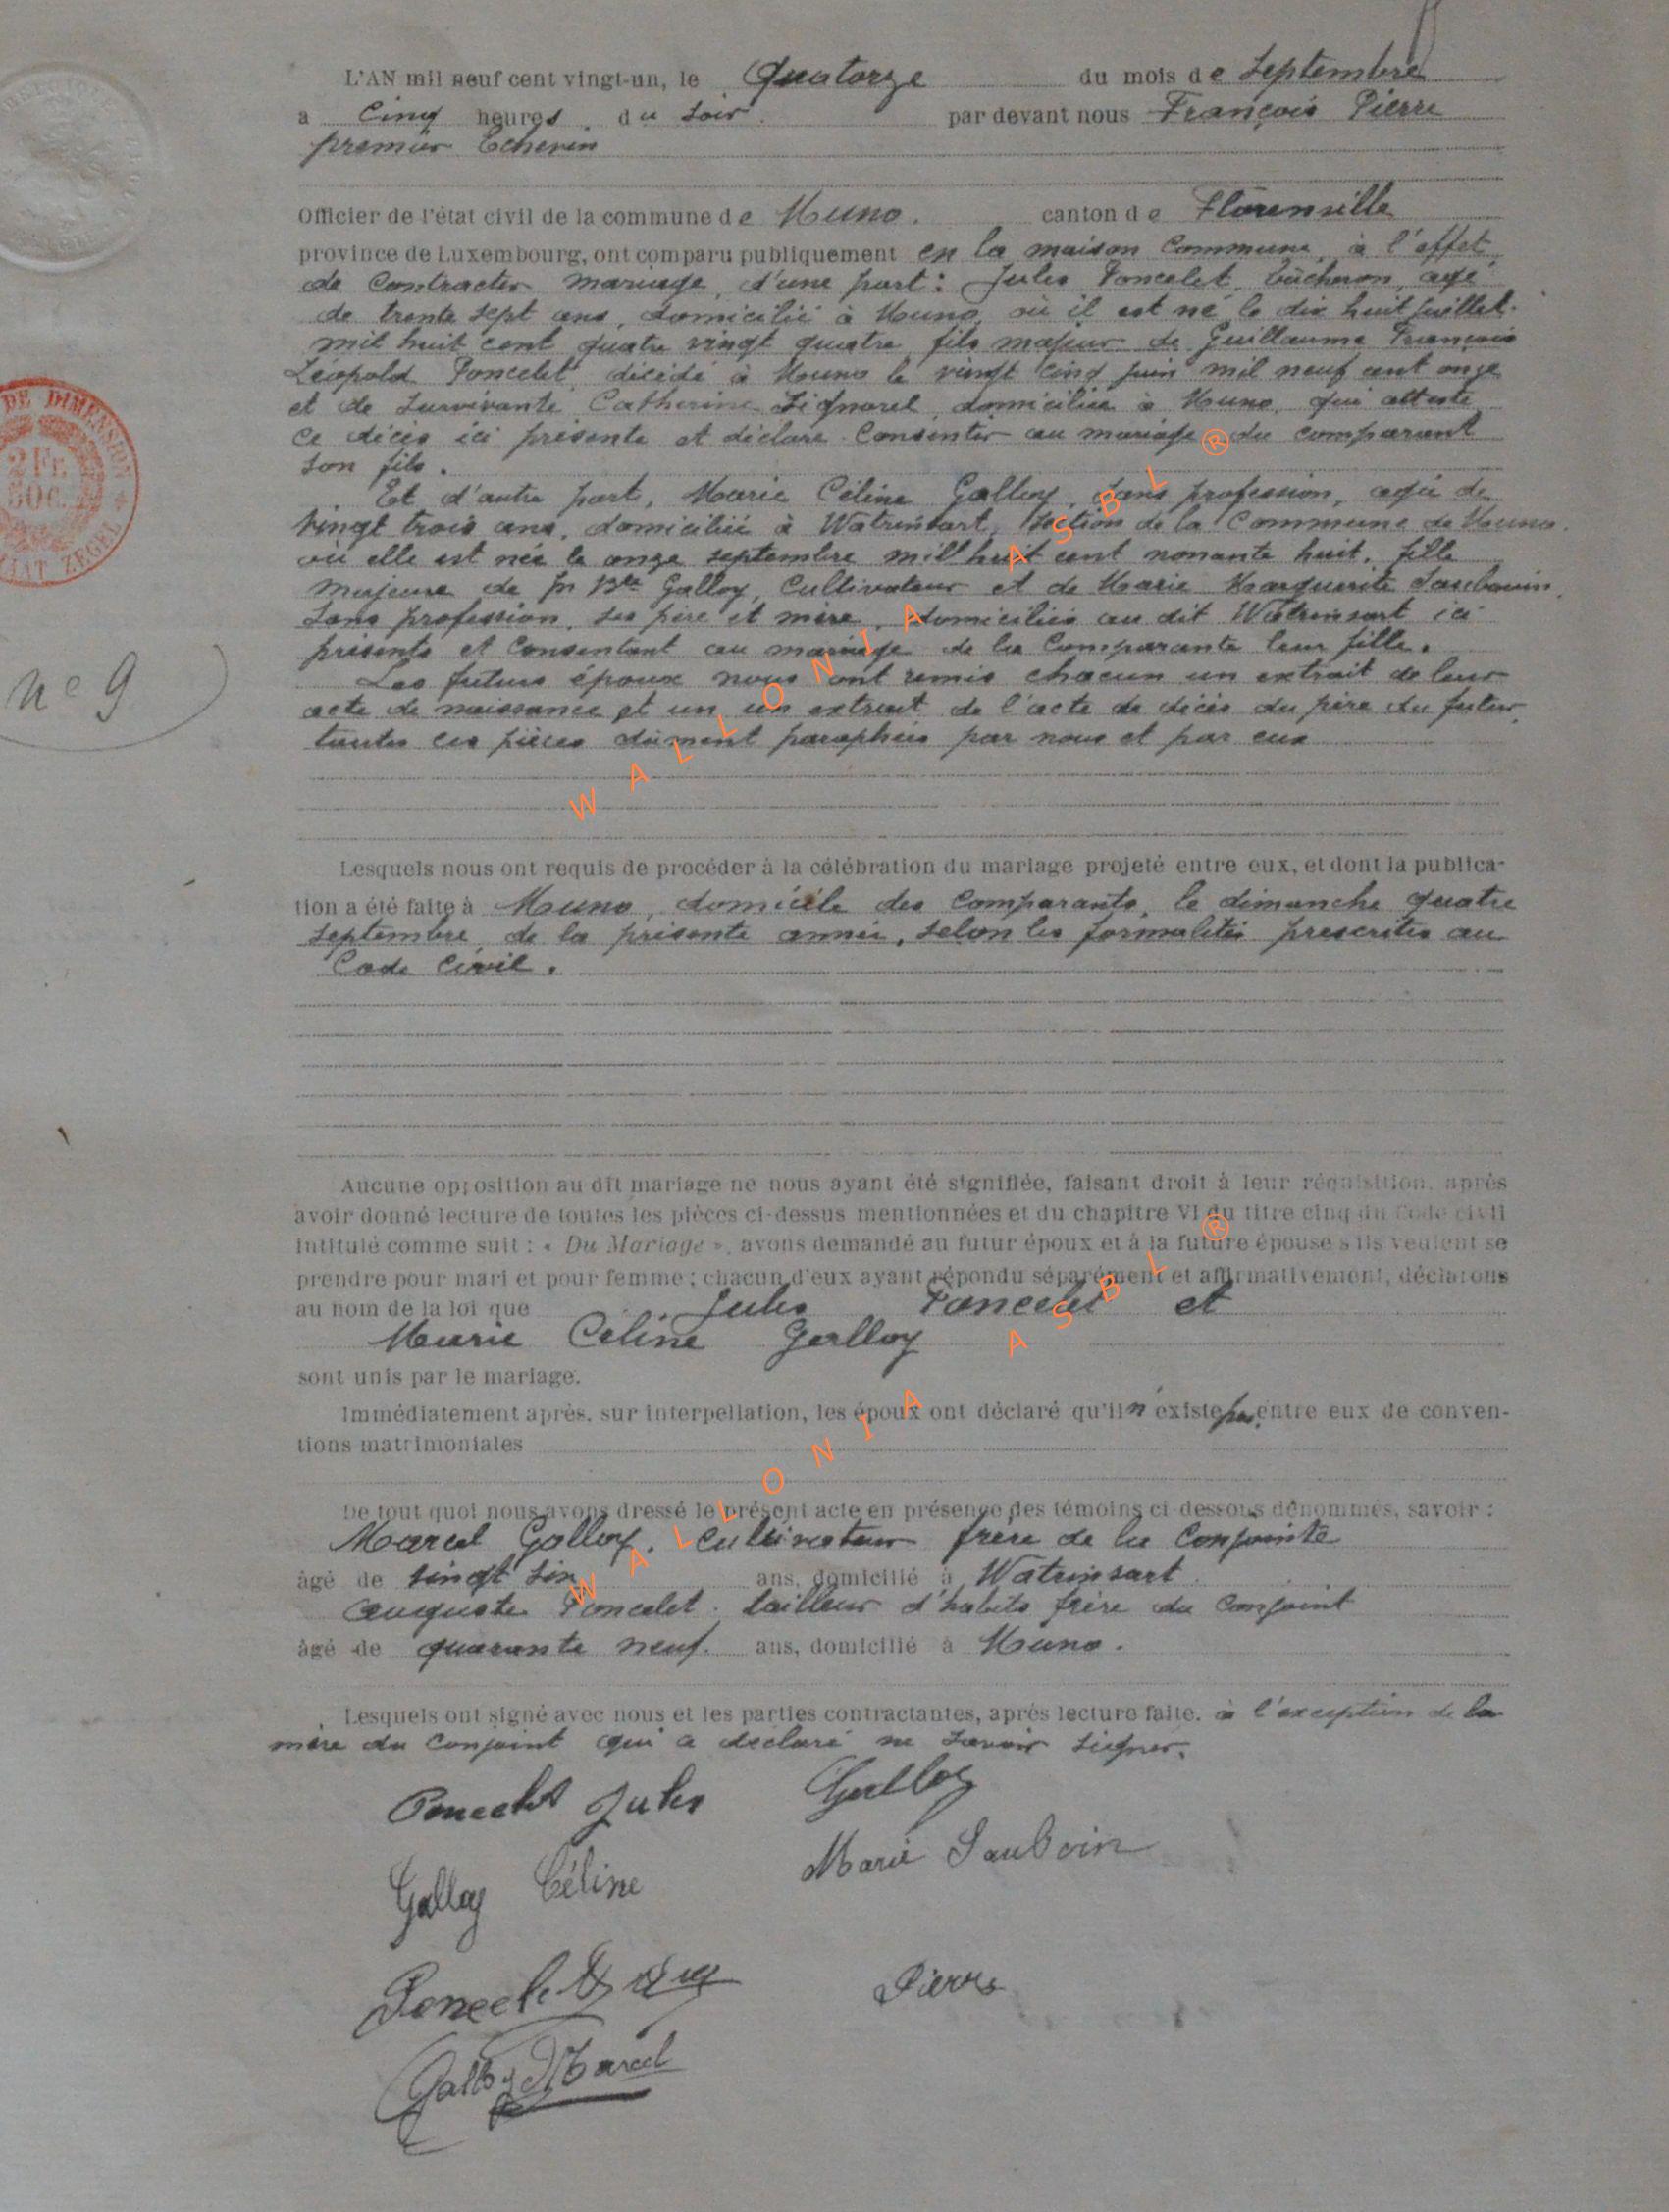 L'AN mil neuf cent vingt-un, le Quatorze du mois de Septembre
a Cinq heures du Soir par devant nous François Pierre
premier Echevin
Officier de l'état civil de la commune de Muno. canton de Florenville
province de Luxembourg, ont comparu publiquement en la maison Commune, à l'effet
de Contracter mariage, d'une part: Jules Poncelet, bûcheron, agé
de trente sept ans, domicilié à Muno, où il est né le dix huit juillet
mil huit cent quatre vingt quatre fils majeur de Guillaume François
Léopold Poncelet, décédé à Muno le vingt cinq juin mil neuf cent onze
et de survivante Catherine domiciliée à Muno, qui atteste
ce décès ici présente et déclare Consenter au mariage du comparant
son fils.
Et d'autre part, Marie Céline Galloy, sans profession, agée de
vingt trois ans, domiciliée à Watrinsart, Section de la Commune de Muno.
où elle est née le onze septembre mil huit cent nonante huit, fille
majeure de Jn Bte Galloy, Cultivateur et de Marie Marguerite
sans profession, ses père et mère, domiciliés au dit Watrinsart ici
présents et Consentant au mariage de la Comparante leur fille.
Les futurs époux nous ont remis chacun un extrait de leur
acte de naissance et un un extrait de l'acte de décès du père du futur,
toutes ces pièces dûment paraphées par nous et par eux
Lesquels nous ont requis de procéder à la célébration du mariage projeté entre eux, et dont la publica-
tion a été faite à Muno, domicile des Comparants, le dimanche quatre
septembre de la présente année, selon les formalités prescrites au
Code Civil.
Aucune opposition au dit mariage ne nous ayant été signifiée, faisant droit à leur réquisition, après
avoir donné lecture de toutes les pièces ci-dessus mentionnées et du chapitre VI du titre cinq du Code civil
intitulé comme suit : « Du Mariage », avons demandé au futur époux et à la future épouse s'ils veulent se
prendre pour mari et pour femme ; chacun d'eux ayant répondu séparément et affirmativement, déclarons
au nom de la loi que Jules Poncelet et
Marie Céline Galloy
sont unis par le mariage.
Immédiatement après, sur interpellation, les époux ont déclaré qu'il n'existe pas entre eux de conven-
tions matrimoniales
De tout quoi nous avons dressé le présent acte en présence des témoins ci-dessous dénommés, savoir :
Marcel Galloy, Cultivateur frère de la Conjointe
âgé de vingt six ans, domicilié à Watrinsart
Auguste Poncelet tailleur d'habits frère du Conjoint
âgé de quarante neuf ans, domicilié à Muno.
Lesquels ont signé avec nous et les parties contractantes, après lecture faite, à l'exception de la
mère du Conjoint qui a déclaré ne savoir signer.
Poncelet Jules Galloy
Galloy Céline Marie Sauboin
Poncelet Pierre
Galloy Marcel
No 9
DE DIMENSION
2 FR
50 C.
ZEGEL
WALLONIA ASBL ®
WALLONIA ASBL ®